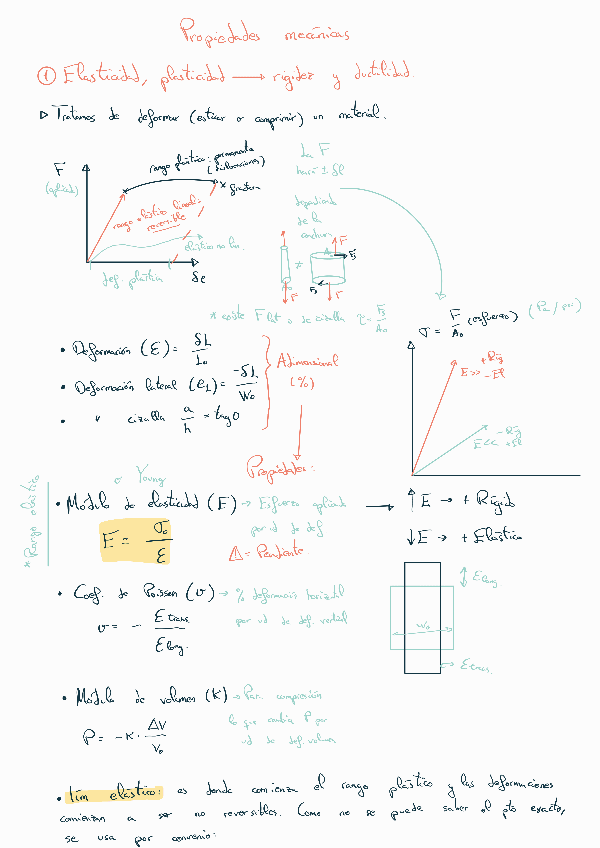 Propiedades mecánicas
① Elasticidad, plasticidad → rigidez y ductilidad
▷ Tratamos de deformar (estirar o comprimir) un material.
F
(aplicada)
rango plástico: permanente
(dislocaciones)
x fractura
rango elástico lineal
reversible
elástico no lin.
def. plástica
δe
La F
hará ± δl
dependiendo
de la
F
F
* existe F lat o de cizalla τ = Fs/A₀
σ = F/A₀ (esfuerzo)
• Deformación (ε) = δL/L₀
• Deformación lateral (e⊥) = -δL/W₀
• " cizalla a/h = tag θ
Adimensional
(%)
+ Rig
E >> - El
- Rig
E << + El
Propiedades:
* Rango elástico
o Young
• Módulo de elasticidad (E) → Esfuerzo aplicado
por ud de def
E = σ₀/ε
Δ = Pendiente
↑E → + Rígido
↓E → + Elástico
• Coef. de Poisson (υ) → % deformación horizontal
por ud de def. vertical
υ = - ε trans/ε long.
ε long
W₀
ε trans.
• Módulo de volumen (K) → Para compresión
lo que cambia P por
ud de def. volumen
P = -K · ΔV/V₀
• Lím elástico: es donde comienza el rango plástico y las deformaciones
comienzan a ser no reversibles. Como no se puede saber el pto exacto,
se usa por convenio: